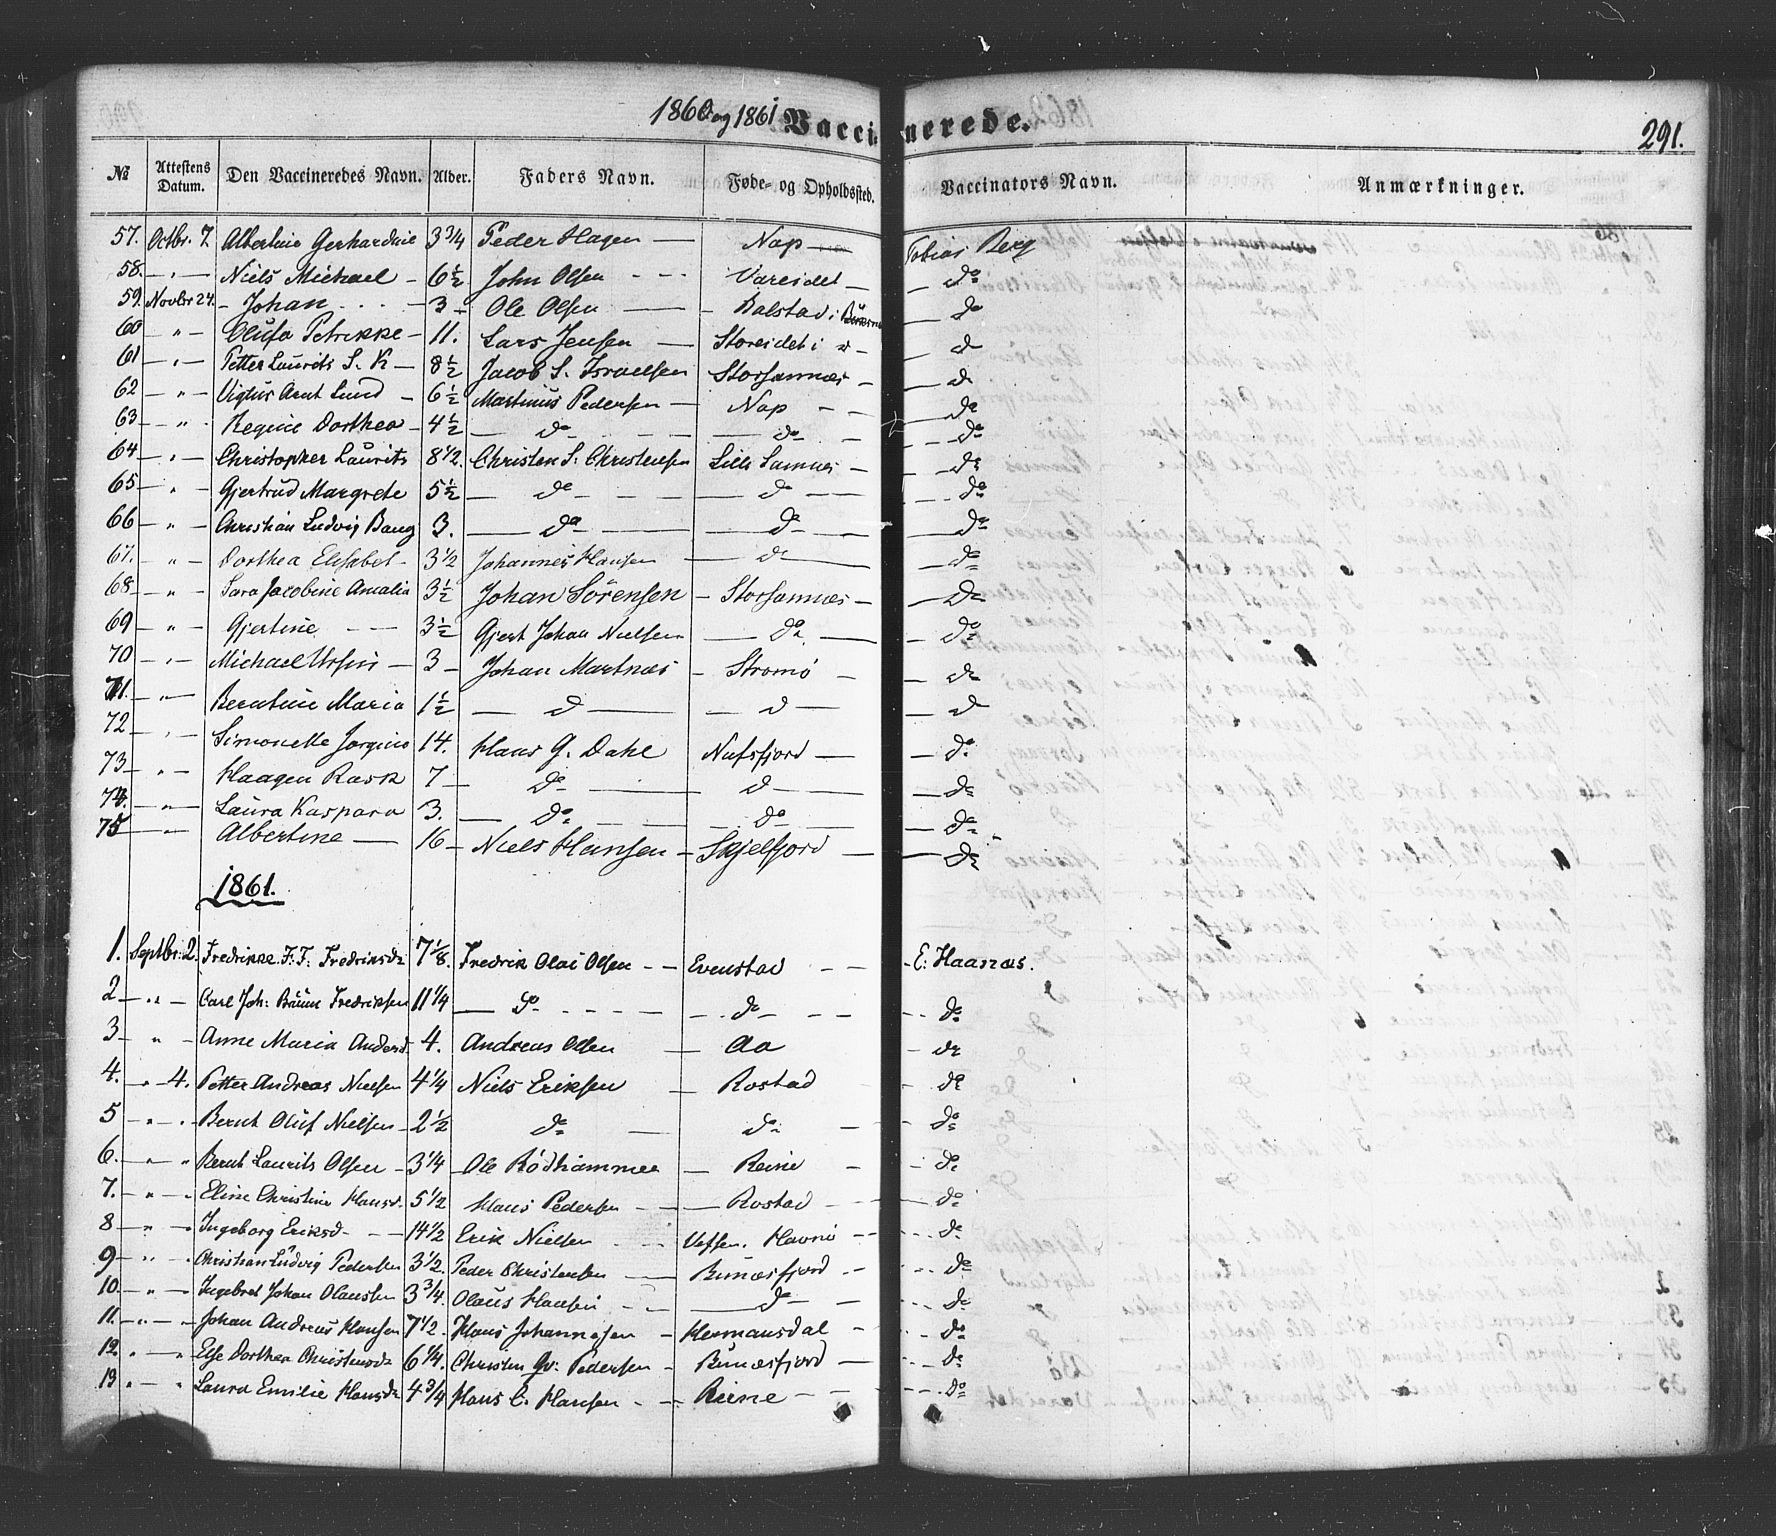 1860 og 1861 Vaccinerede. 291.
№ Attestens Datum. Den Vaccineredes Navn. Alder. Faders Navn. Føde- og Opholdssted. Vaccinators Navn. Anmærkninger.
57. Octbr. 7. Albertine Gerhardine 3 3/4 Peder Hagen — Nap — Tobias Berg
58. — " — Niels Michael - 6 1/2 John Olsen - - - Vareidet — do
59. Novbr 24. - Johan . . . - 3 - Ole Olsen — - Balstad i — do
60 — " — Olufa Petrikke - 11. Lars Jensen — Storeidet i d - — d
61 — " — Petter Laurits S. K — 8 1/2 Jacob S. Israelsen Storsannæs - — d
62 — " — Vigtus Arnt Lund - 6 1/2 Martinus Pedersen — Nap - - — do
63 — " . Regine Dorthea - 4 1/2 — do — do — do
64 — " — Christopher Laurits 8 1/2. Christen S. Christensen Lille Sannes — do
65 — " — Gjertrud Margrete 5 1/2 — do — do — do
66 — " — Christian Ludvig Baug 3. — do — do — do
67. — " — Dorthea Elisabet - 3 1/2 Johannes Hansen — do — do
68 — " — Sara Jacobine Amalia 3 1/2 Johan Sörensen - Storsannæs - — do
69 — " — Gjertine — 3 1/2 Gjert Johan Nielsen — do — do
70 — " — Michael Ursin — 3 - Johan Martnæs - Stromö - — do
71. — " — Berntine Maria 1 1/2 — d — d — — d
72 " Simonette Jorgine 14. Hans G. Dahl Nufsfjord — — do
73 — " — Haagen Rask 7 — do — d — — do
74. — " — Laura Kaspara 3. — do — do — do
75 — " — Albertine — 16 - Niels Hansen - Skjelfjord — — do
1861.
1. Septbr: 2. Fredrikke F. F. Fredriksdr 7 1/8. Fredrik Olai Olsen - - Evenstad - - E. Haanæs.
2 — " — Carl Joh: Baum Fredriksen 11 1/4 — do - - - - do — do
3 — " - Anne Maria Andersd. 4. Andreas Olsen — Aa - do
4. - " 4. Petter Andreas Nielsen 4 1/4 Niels Eriksen — Rostad - do
5 — " . Bernt Oluf Nielsen - 2 1/2 do — do — do
6. — " " Bernt Laurits Olsen - 3 1/4 - Ole Rödhammer — Reine - - do
7. — " - " Eline Christine Hansd. 5 1/2 Hans Pedersen — Rostad - - do
8 — " — " Ingeborg Eriksd - - - 14 1/2 Erik Nielsen - - Vefsen. Havnö - - do
9 - " - " Christian Ludvig Pedersen 3 1/2. Peder Christensen — Bunæsfjord - - do
10. — " — " Ingebret Johan Olaussen 3 3/4. Olaus Hansen - - do — do
11. — " — " Johan Andreas Hansen 7 1/2. Hans Johannesen - Hermansdal — do
12. " — " Else Dorthea Christensdr 6 1/4. Christen Gr: Pedersen - Bunæsfjord — do
13 " — " Laura Emilie Hansdr 4 3/4 Hans C. Hansen - — Reine - - do